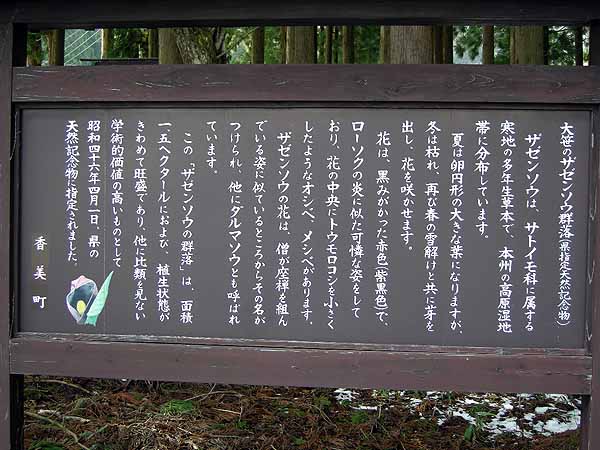 大笹のザゼンソウ群落（県指定天然記念物）
ザゼンソウは、サトイモ科に属する
寒地の多年生草本で、本州の高原湿地
帯に分布しています。
夏は卵円形の大きな葉になりますが、
冬は枯れ、再び春の雪解けと共に芽を
出し、花を咲かせます。
花は、黒みがかった赤色（紫黒色）で、
ローソクの炎に似た可憐な姿をして
おり、花の中央にトウモロコシを小さく
したようなオシベ、メシベがあります。
ザゼンソウの花は、僧が座禅を組ん
でいる姿に似ているところからその名が
つけられ、他にダルマソウとも呼ばれ
ています。
この「ザゼンソウの群落」は、面積
一.五ヘクタールにおよび、植生状態が
きわめて旺盛であり、他に比類を見ない
学術的価値の高いものとして
昭和四十六年四月一日、県の
天然記念物に指定されました。
香美町